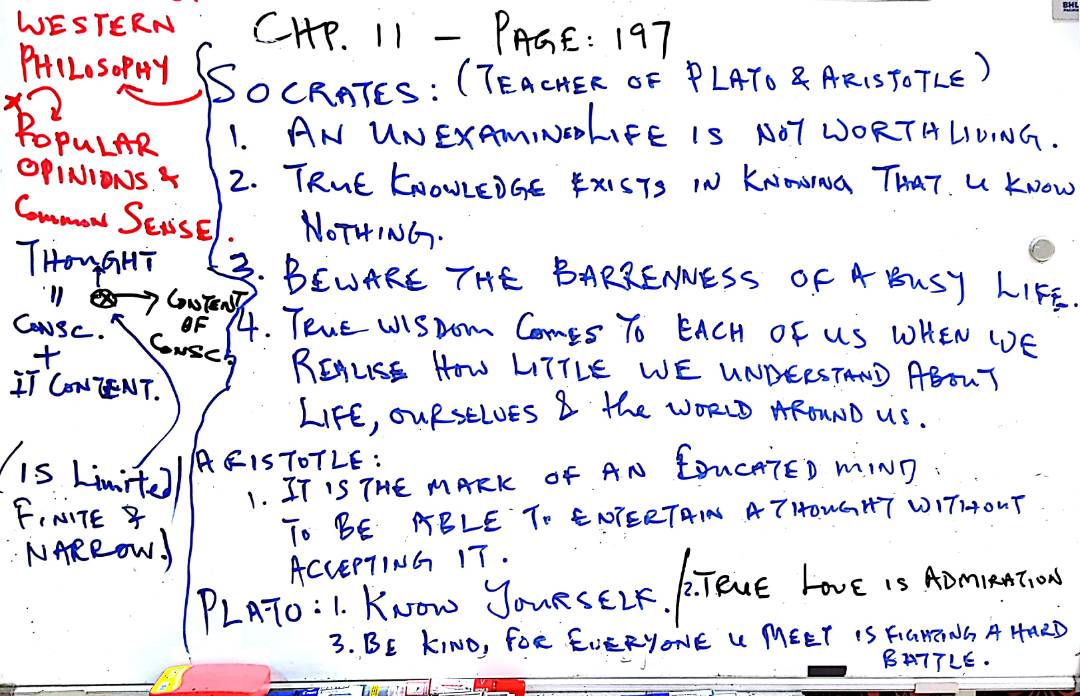 WESTERN
PHILOSOPHY
POPULAR
OPINIONS &
Common SENSE.
THOUGHT
"
CONSC.
+
IT CONTENT.
CONTENT
OF
CONSC.
(IS Limited
FINITE &
NARROW.)
CHP. 11 – PAGE: 197
SOCRATES: (TEACHER OF PLATO & ARISTOTLE)
1. AN UNEXAMINED LIFE IS NOT WORTH LIVING.
2. TRUE KNOWLEDGE EXISTS IN KNOWING THAT U KNOW
NOTHING.
3. BEWARE THE BARRENNESS OF A BUSY LIFE.
4. TRUE WISDOM COMES TO EACH OF US WHEN WE
REALISE HOW LITTLE WE UNDERSTAND ABOUT
LIFE, OURSELVES & the WORLD AROUND US.
ARISTOTLE:
1. IT IS THE MARK OF AN EDUCATED MIND
TO BE ABLE TO ENTERTAIN A THOUGHT WITHOUT
ACCEPTING IT.
PLATO: 1. KNOW YOURSELF. / 2. TRUE LOVE IS ADMIRATION
3. BE KIND, FOR EVERYONE U MEET IS FIGHTING A HARD
BATTLE.
BHL